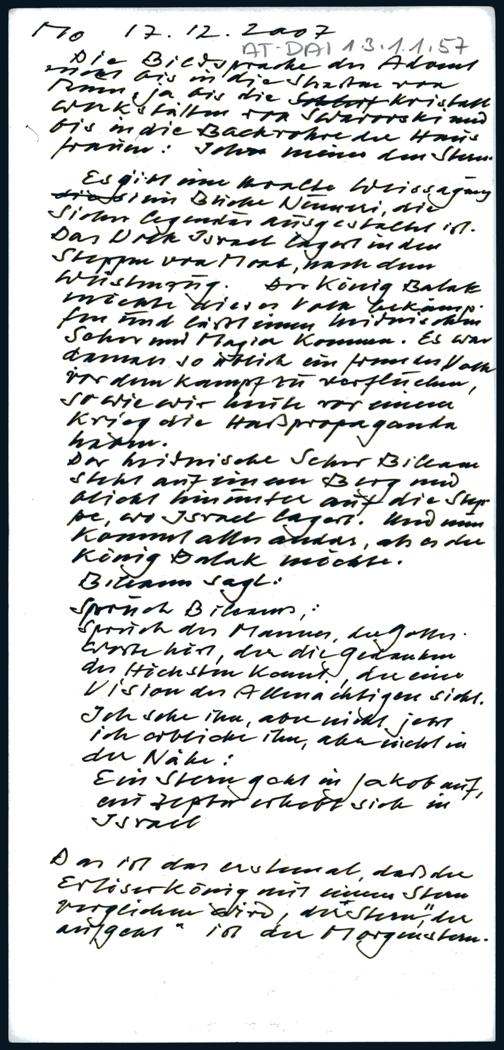 Mo 17.12.2007
AT-DAI 13.1.1.57
Die Bildsprache des Advent
reicht bis in die Straßen von
ja bis die Kristall
werkstätten von Swarovski und
bis in die Backrohre der Haus
frauen: Ich meine den Stern.
Es gibt eine uralte Weissagung
im Buche Numeri, die
sicher legendär ausgestaltet ist.
Das Volk Israel lagert in den
Steppen von Moab, nach dem
Wüstenzug. Der König Balak
möchte dieses Volk bekämp
fen und läßt einen heidnischen
Seher und Magier kommen. Es war
damals so üblich ein fremdes Volk
vor dem Kampf zu verfluchen,
so wie wir heute vor einem
Krieg die Haßpropaganda
haben.
Der heidnische Seher Bileam
steht auf einem Berg und
blickt hinunter auf die Step
pe, wo Israel lagert. Und nun
kommt alles anders, als es der
König Balak möchte.
Bileam sagt:
Spruch Bileams,:
Spruch des Mannes, der Gottes
Worte hört, der die Gedanken
des Höchsten kennt, der eine
Vision des Allmächtigen sieht.
Ich sehe ihn, aber nicht jetzt
ich erblicke ihn, aber nicht in
der Nähe:
Ein Stern geht in Jakob auf,
ein Zepter erhebt sich in
Israel
Das ist das erstemal, daß der
Erlöserkönig mit einem Stern
verglichen wird, der "Stern", der
aufgeht" ist der Morgenstern.